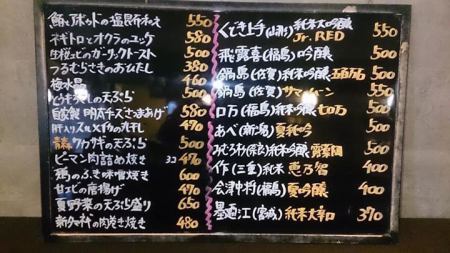 鮪とアボカドの塩昆布和え 550
ネギトロとオクラのユッケ 580
生桜エビのガーリックトースト 500
つるむらさきのおひたし 380
極水 460
とうもろこしの天ぷら 500
自家製 明太チーズさつまあげ 580
肝入りスルメイカの丸干し 470
青森 ワカサギの天ぷら 500
ピーマン肉詰め焼き 3コ 470
鶏のふき味噌焼き 600
甘エビの唐揚げ 470
夏野菜の天ぷら盛り 650
新タマネギの肉巻き焼き 480
くどき上手(山形)純米大吟醸 Jr. RED 550
飛露喜(福島)吟醸 500
鍋島(佐賀)純米吟醸 五百万石 500
鍋島(佐賀)サマームーン 550
ロ万(福島)純米吟醸 七ロ万 500
あべ(新潟)夏純吟 500
みむろ杉(奈良)純米吟醸 露葉風 500
作(三重)純米 恵乃智 400
会津中将(福島)夏吟醸 400
墨廼江(宮城)純米大辛口 370